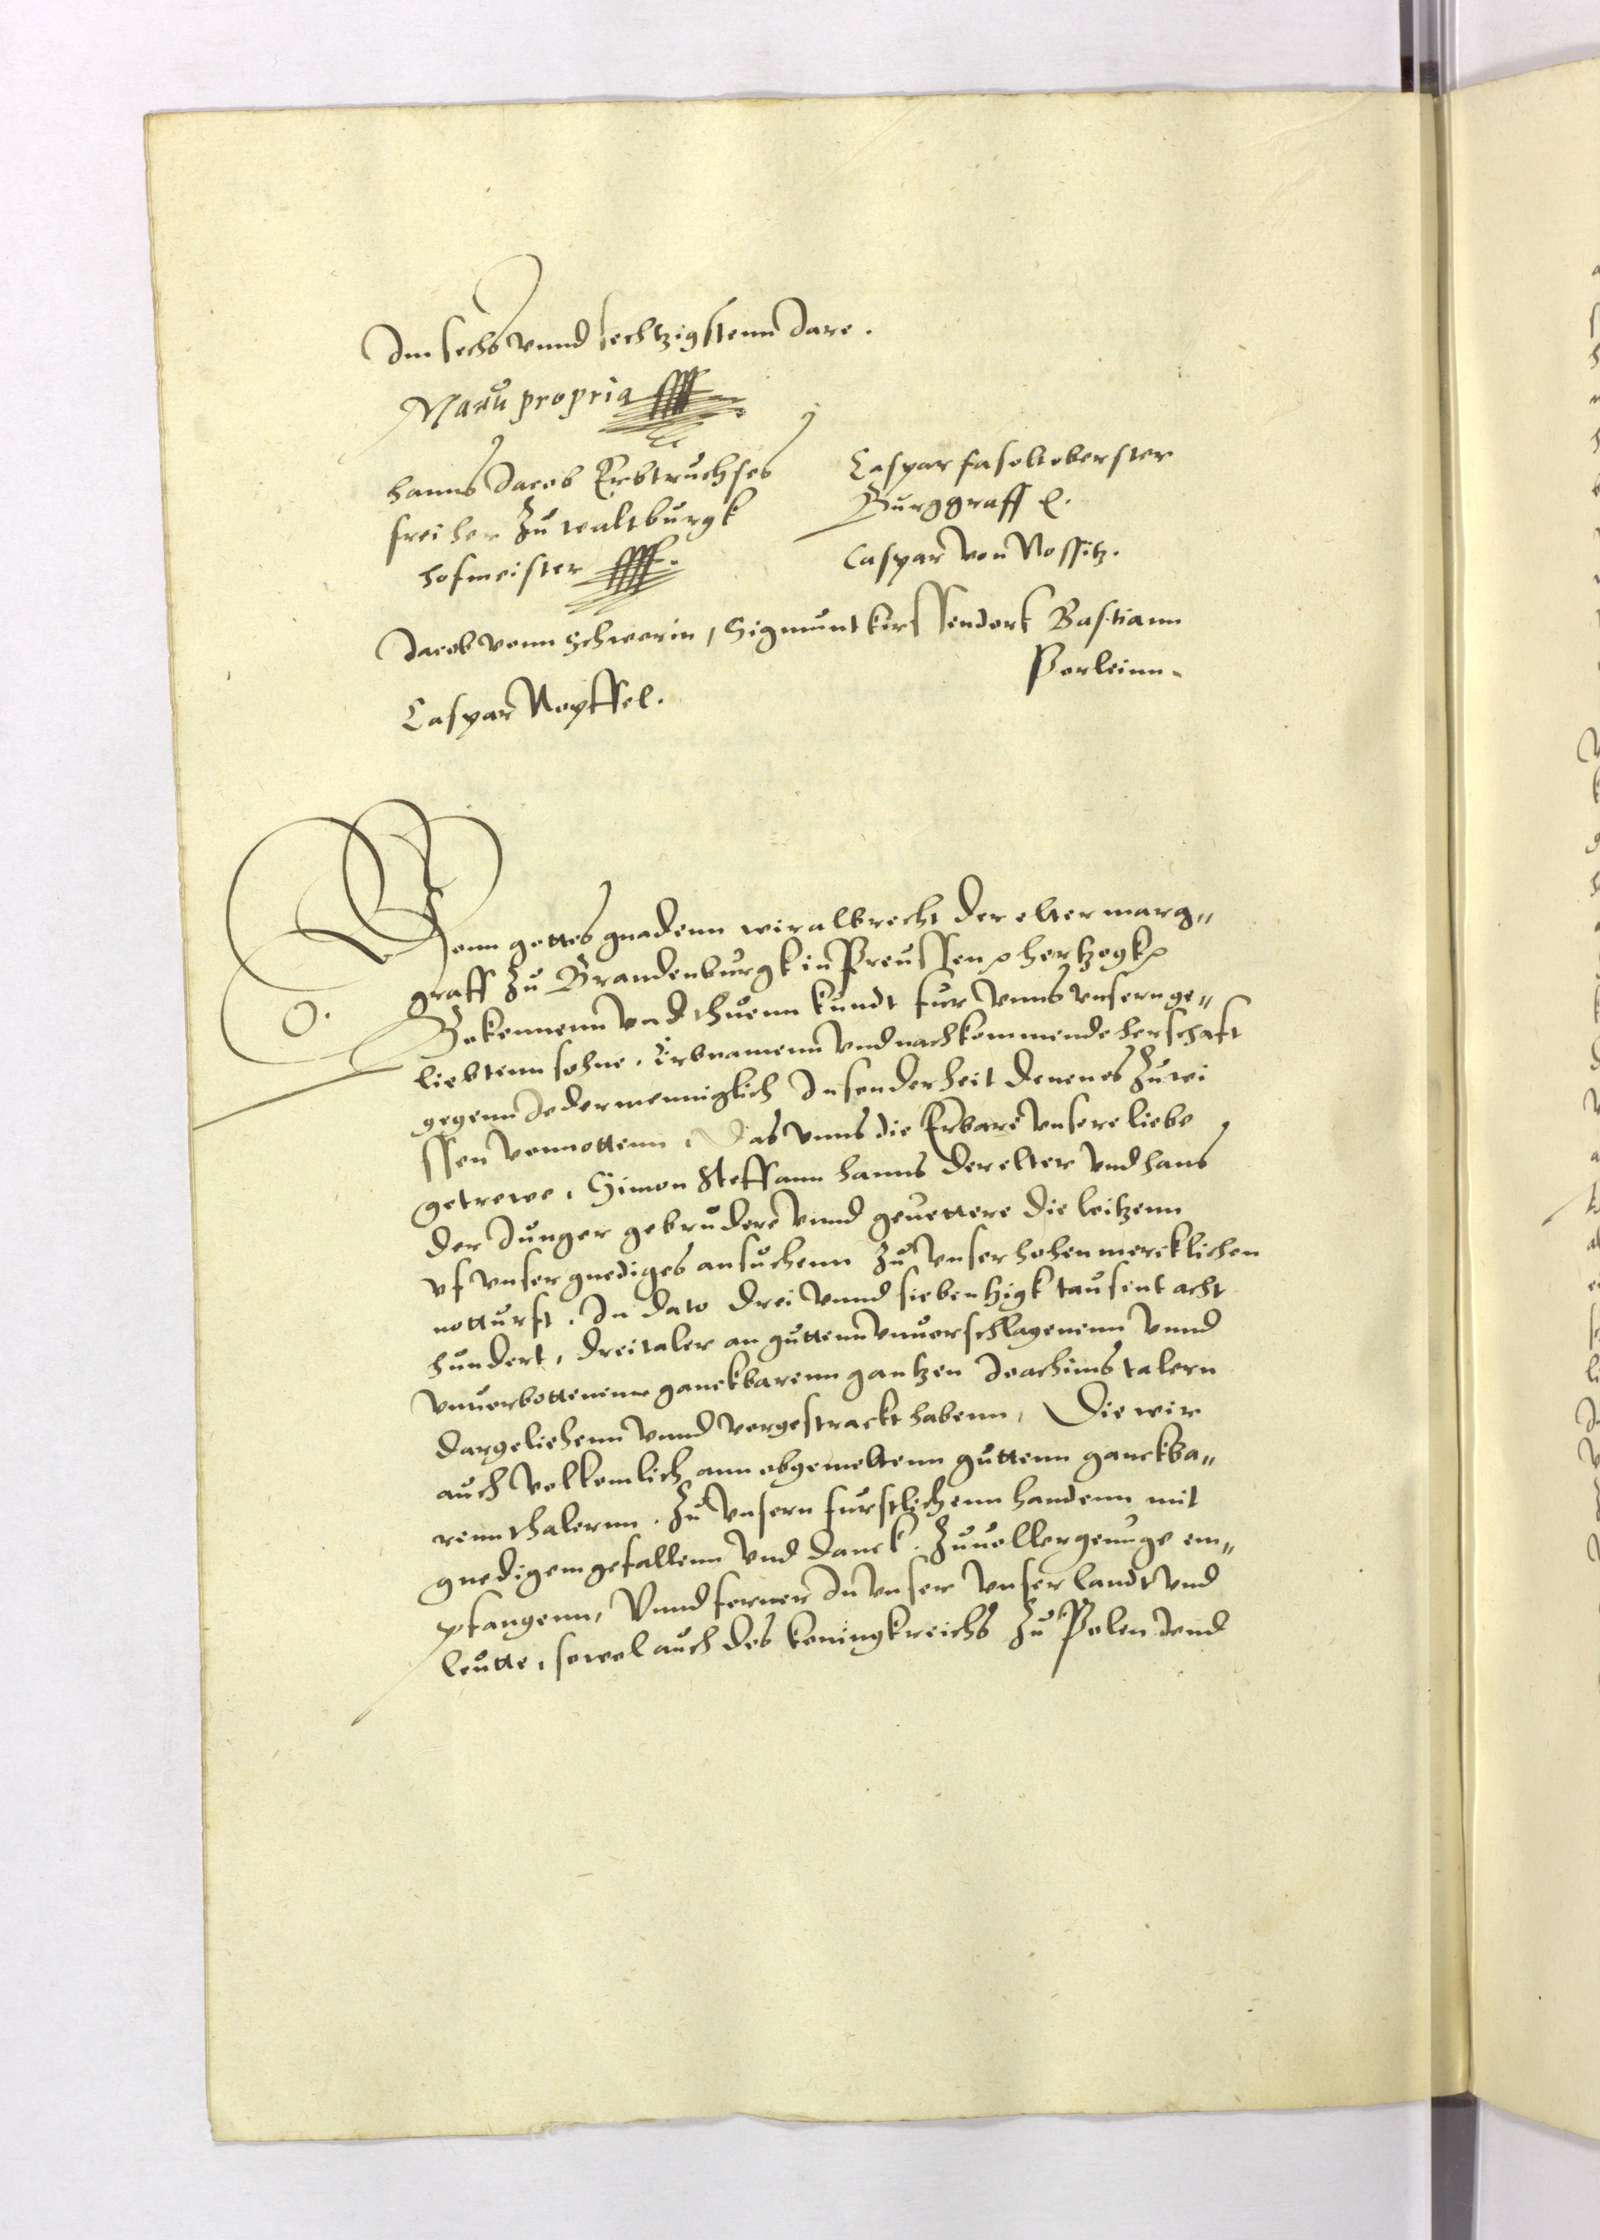 Im sechs vnnd sechtzigstenn Jare.
Manu propria
hanns Jacob Erbtruchses
freiher zu waltburgk
hofmeister
Caspar fasolt oberster
Burggraff
Caspar von Nostitz.
Jacob vonn Schwerin, Sigmunt kirssendork Bastiann
Perleinn.
Caspar Noppffel.
Vonn gottes gnadenn wir albrecht der elter marg„
graff zu Brandenburgk in Preussen hertzogk
O.
Bekennenn vnd thuenn kundt fur vnns vnsern ge„
liebtenn sohne. Erbnamenn vnd nachkommende herschaft
gegenn Jedermenniglich Insonderheit denen es zuwi
ssen vonnottenn, Das vnns die Erbare vnsere liebe
getrewe, Simon Steffann hanns der elter vnd hans
der Junger gebrudere vnnd geuettere die leitzenn
vf vnser gnediges ansuchenn zu vnser hohen mercklichen
notturft, In dato drei vnnd siebenhigk tausent acht
hundert, drei taler an guttenn vnuerschlagenenn vnnd
vnuerbottenenn ganckbarenn gantzen Joachims talern
dargeliehenn vnnd vorgestrackt habenn, Die wir
auch volkomlich ann obgemeltenn guttenn ganckba„
renn thalernn. zu vnsern furstlichenn handenn mit
gnedigem gefallenn vnd danck. zuuoller genuge em„
pfangenn, Vnnd ferner In vnser vnser landt vnd
leutte, sowol auch des koningkreichs zu Polen vnd